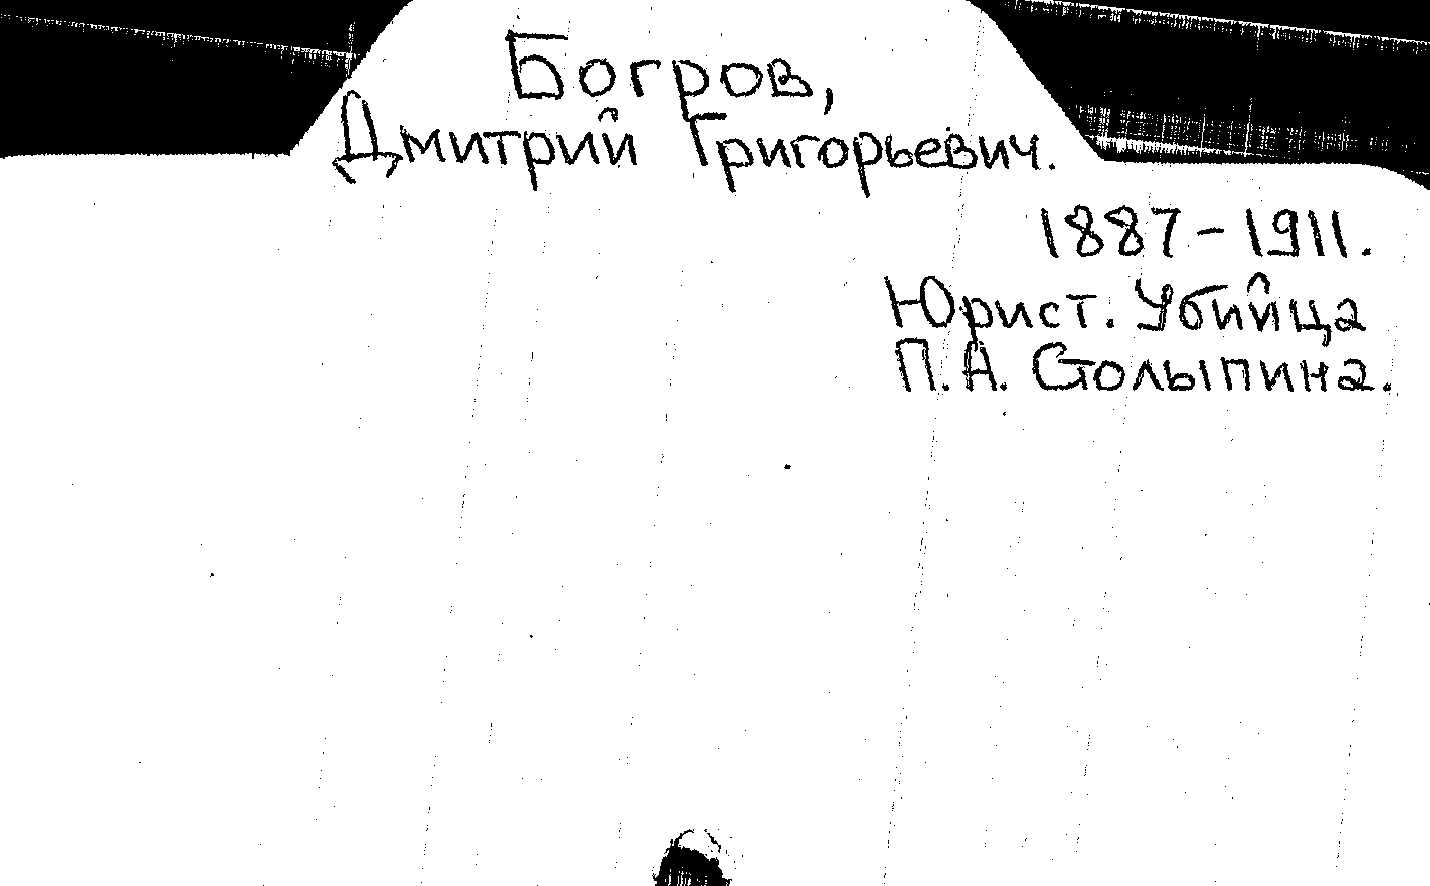 Богров,
Дмитрий Григорьевич.
1887-1911.
Юрист. Убийца
П.А. Столыпина.